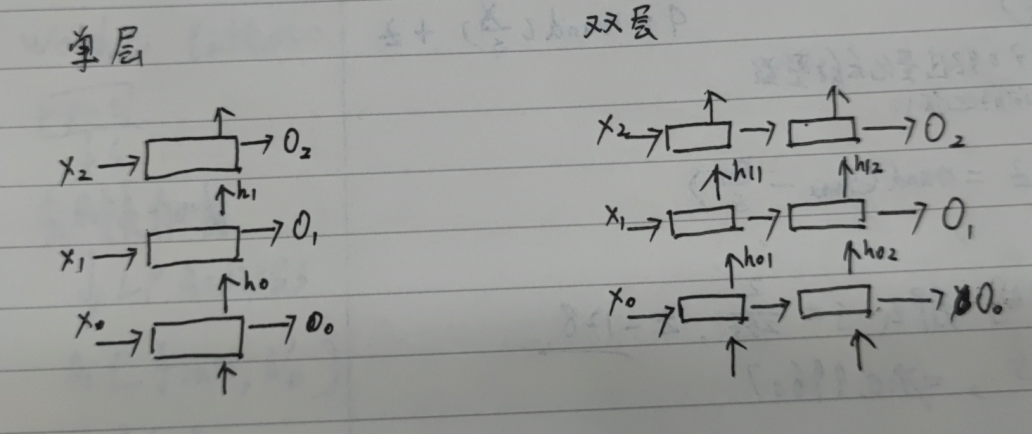 单层
双层
x₂ O₂
h₁
x₁ O₁
h₀
x₀ O₀
x₂ O₂
h₁₁ h₁₂
x₁ O₁
h₀₁ h₀₂
x₀ O₀